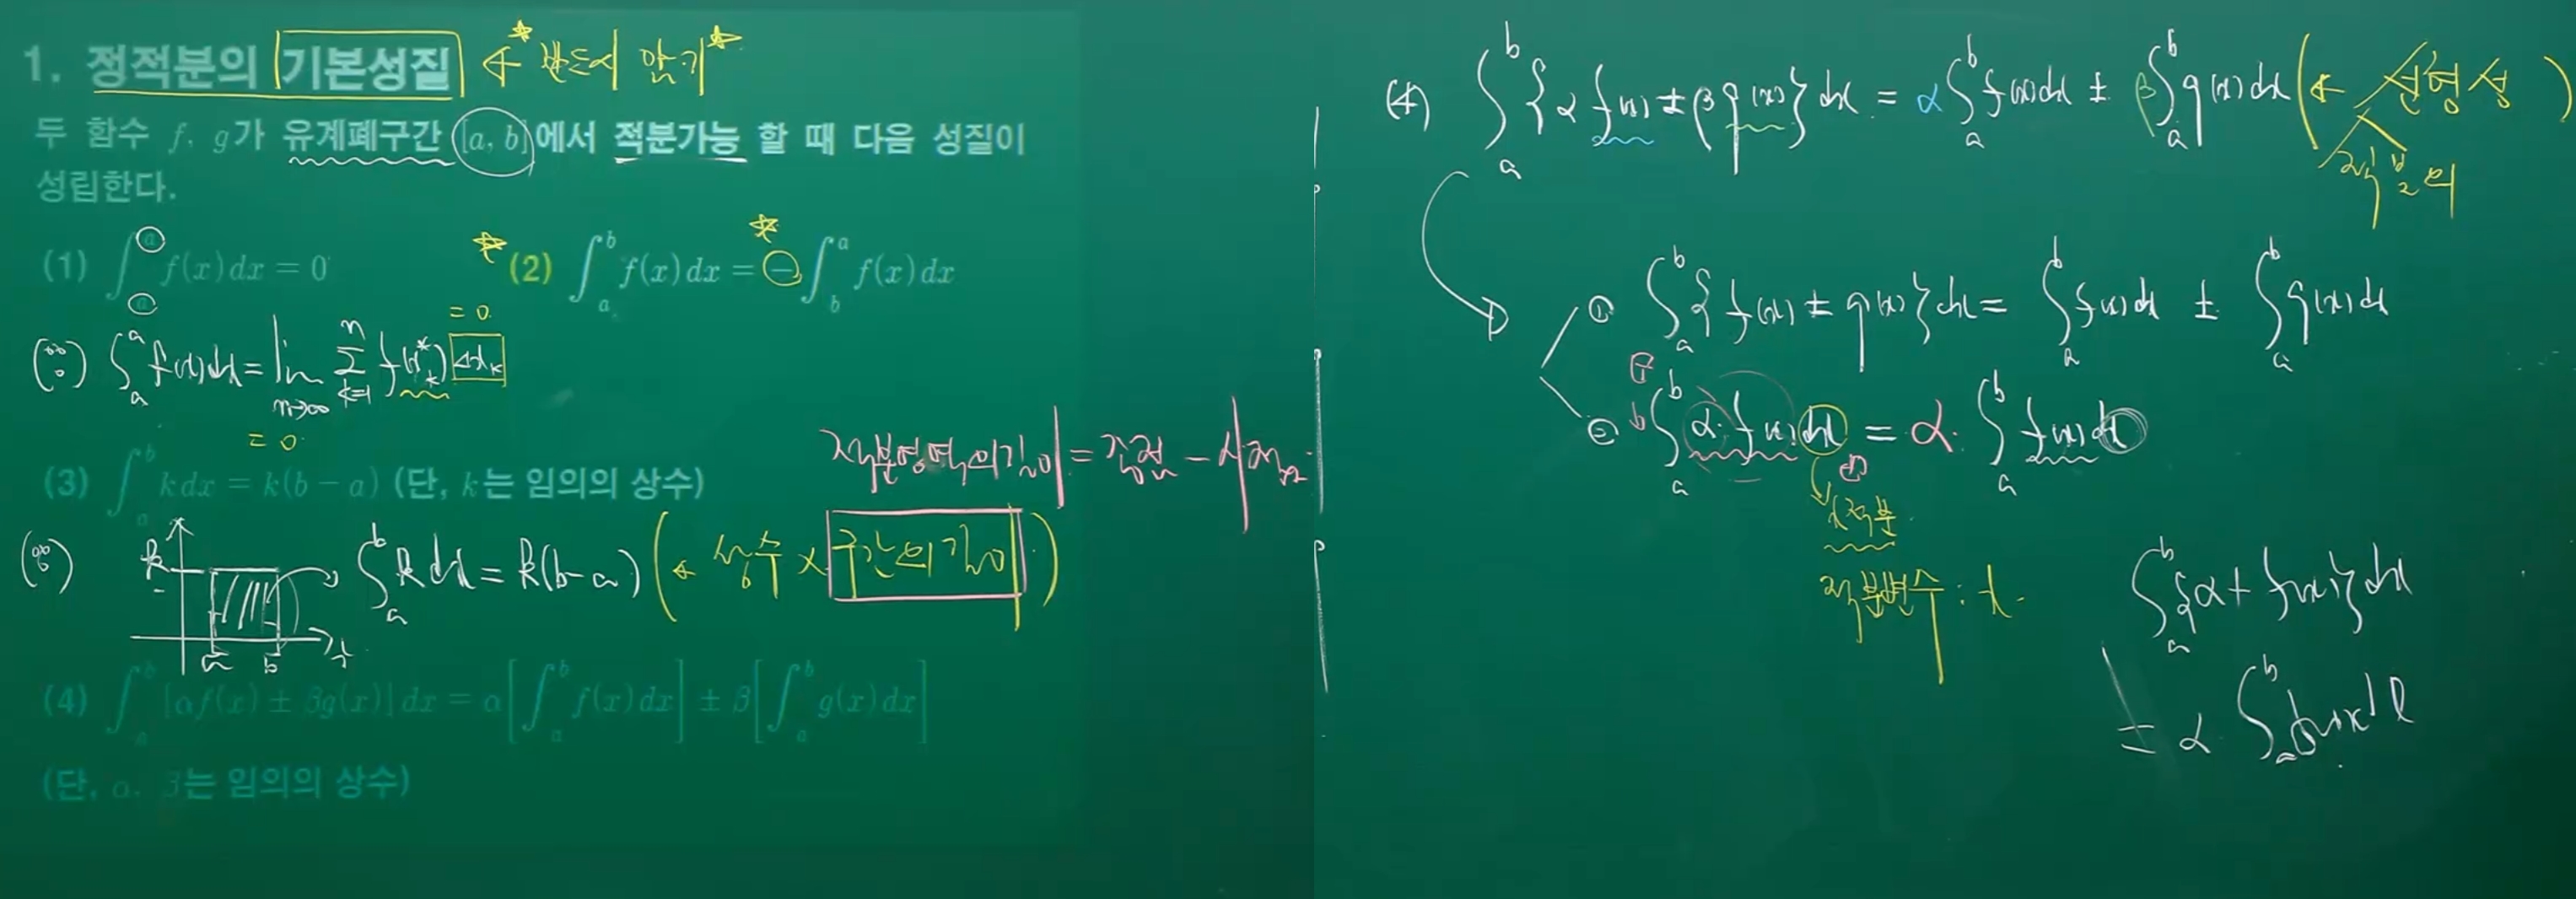 1. 정적분의 기본성질 ← *반드시 암기*
두 함수 f, g가 유계폐구간 [a, b]에서 적분가능 할 때 다음 성질이
성립한다.
(1) ∫_a^a f(x)dx = 0
*(2) ∫_a^b f(x)dx = -∫_b^a f(x)dx
(∵) ∫_a^a f(x)dx = lim_{n→∞} Σ_{k=1}^n f(x_k*) Δx_k
= 0.
= 0.
(3) ∫_a^b k dx = k(b - a) (단, k는 임의의 상수)
적분영역의 길이 = 끝점 - 시작점.
(∵) k a b x ∫_a^b k dx = k(b-a) (← 상수 × 구간의 길이)
(4) ∫_a^b [αf(x) ± βg(x)]dx = α[∫_a^b f(x)dx] ± β[∫_a^b g(x)dx]
(단, α, β는 임의의 상수)
(4) ∫_a^b {α f(x) ± β g(x)} dx = α ∫_a^b f(x)dx ± β ∫_a^b g(x)dx (← 선형성)
적분의
① ∫_a^b {f(x) ± g(x)} dx = ∫_a^b f(x)dx ± ∫_a^b g(x)dx
② ∫_a^b α·f(x)dx = α·∫_a^b f(x)dx
x적분
적분변수 : x.
∫_a^b {α + f(x)} dx
= α ∫_a^b